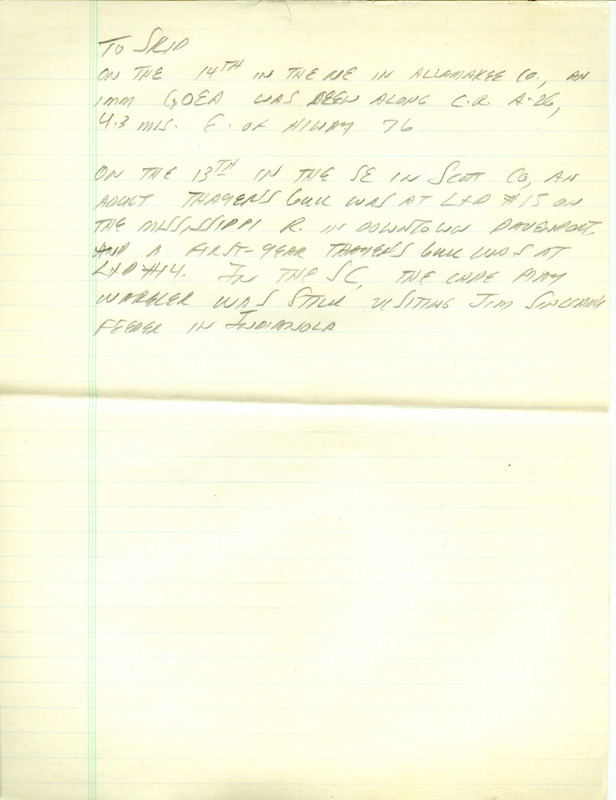 TO SKID
ON THE 14TH IN THE NE IN ALLAMAKEE CO., AN
IMM GOEA WAS SEEN ALONG C.R. A-26,
4.3 MIS. E. OF HIWAY 76
ON THE 13TH IN THE SE IN SCOTT CO, AN
ADULT THAYER'S GULL WAS AT L+D #15 ON
THE MISSISSIPPI R. IN DOWNTOWN DAVENPORT.
AND A FIRST-YEAR THAYER'S GULL WAS AT
L+D #14. IN THE SC, THE CAPE MAY
WARBLER WAS STILL VISITING JIM SINCLAIR'S
FEEDER IN INDIANOLA